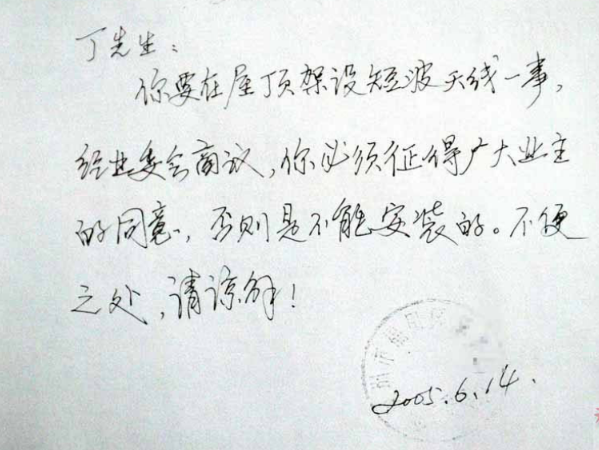 丁先生：
你要在屋顶架设短波天线一事，
经业委会商议，你必须征得广大业主
的同意，否则是不能安装的。不便
之处，请谅解！
2005.6.14.